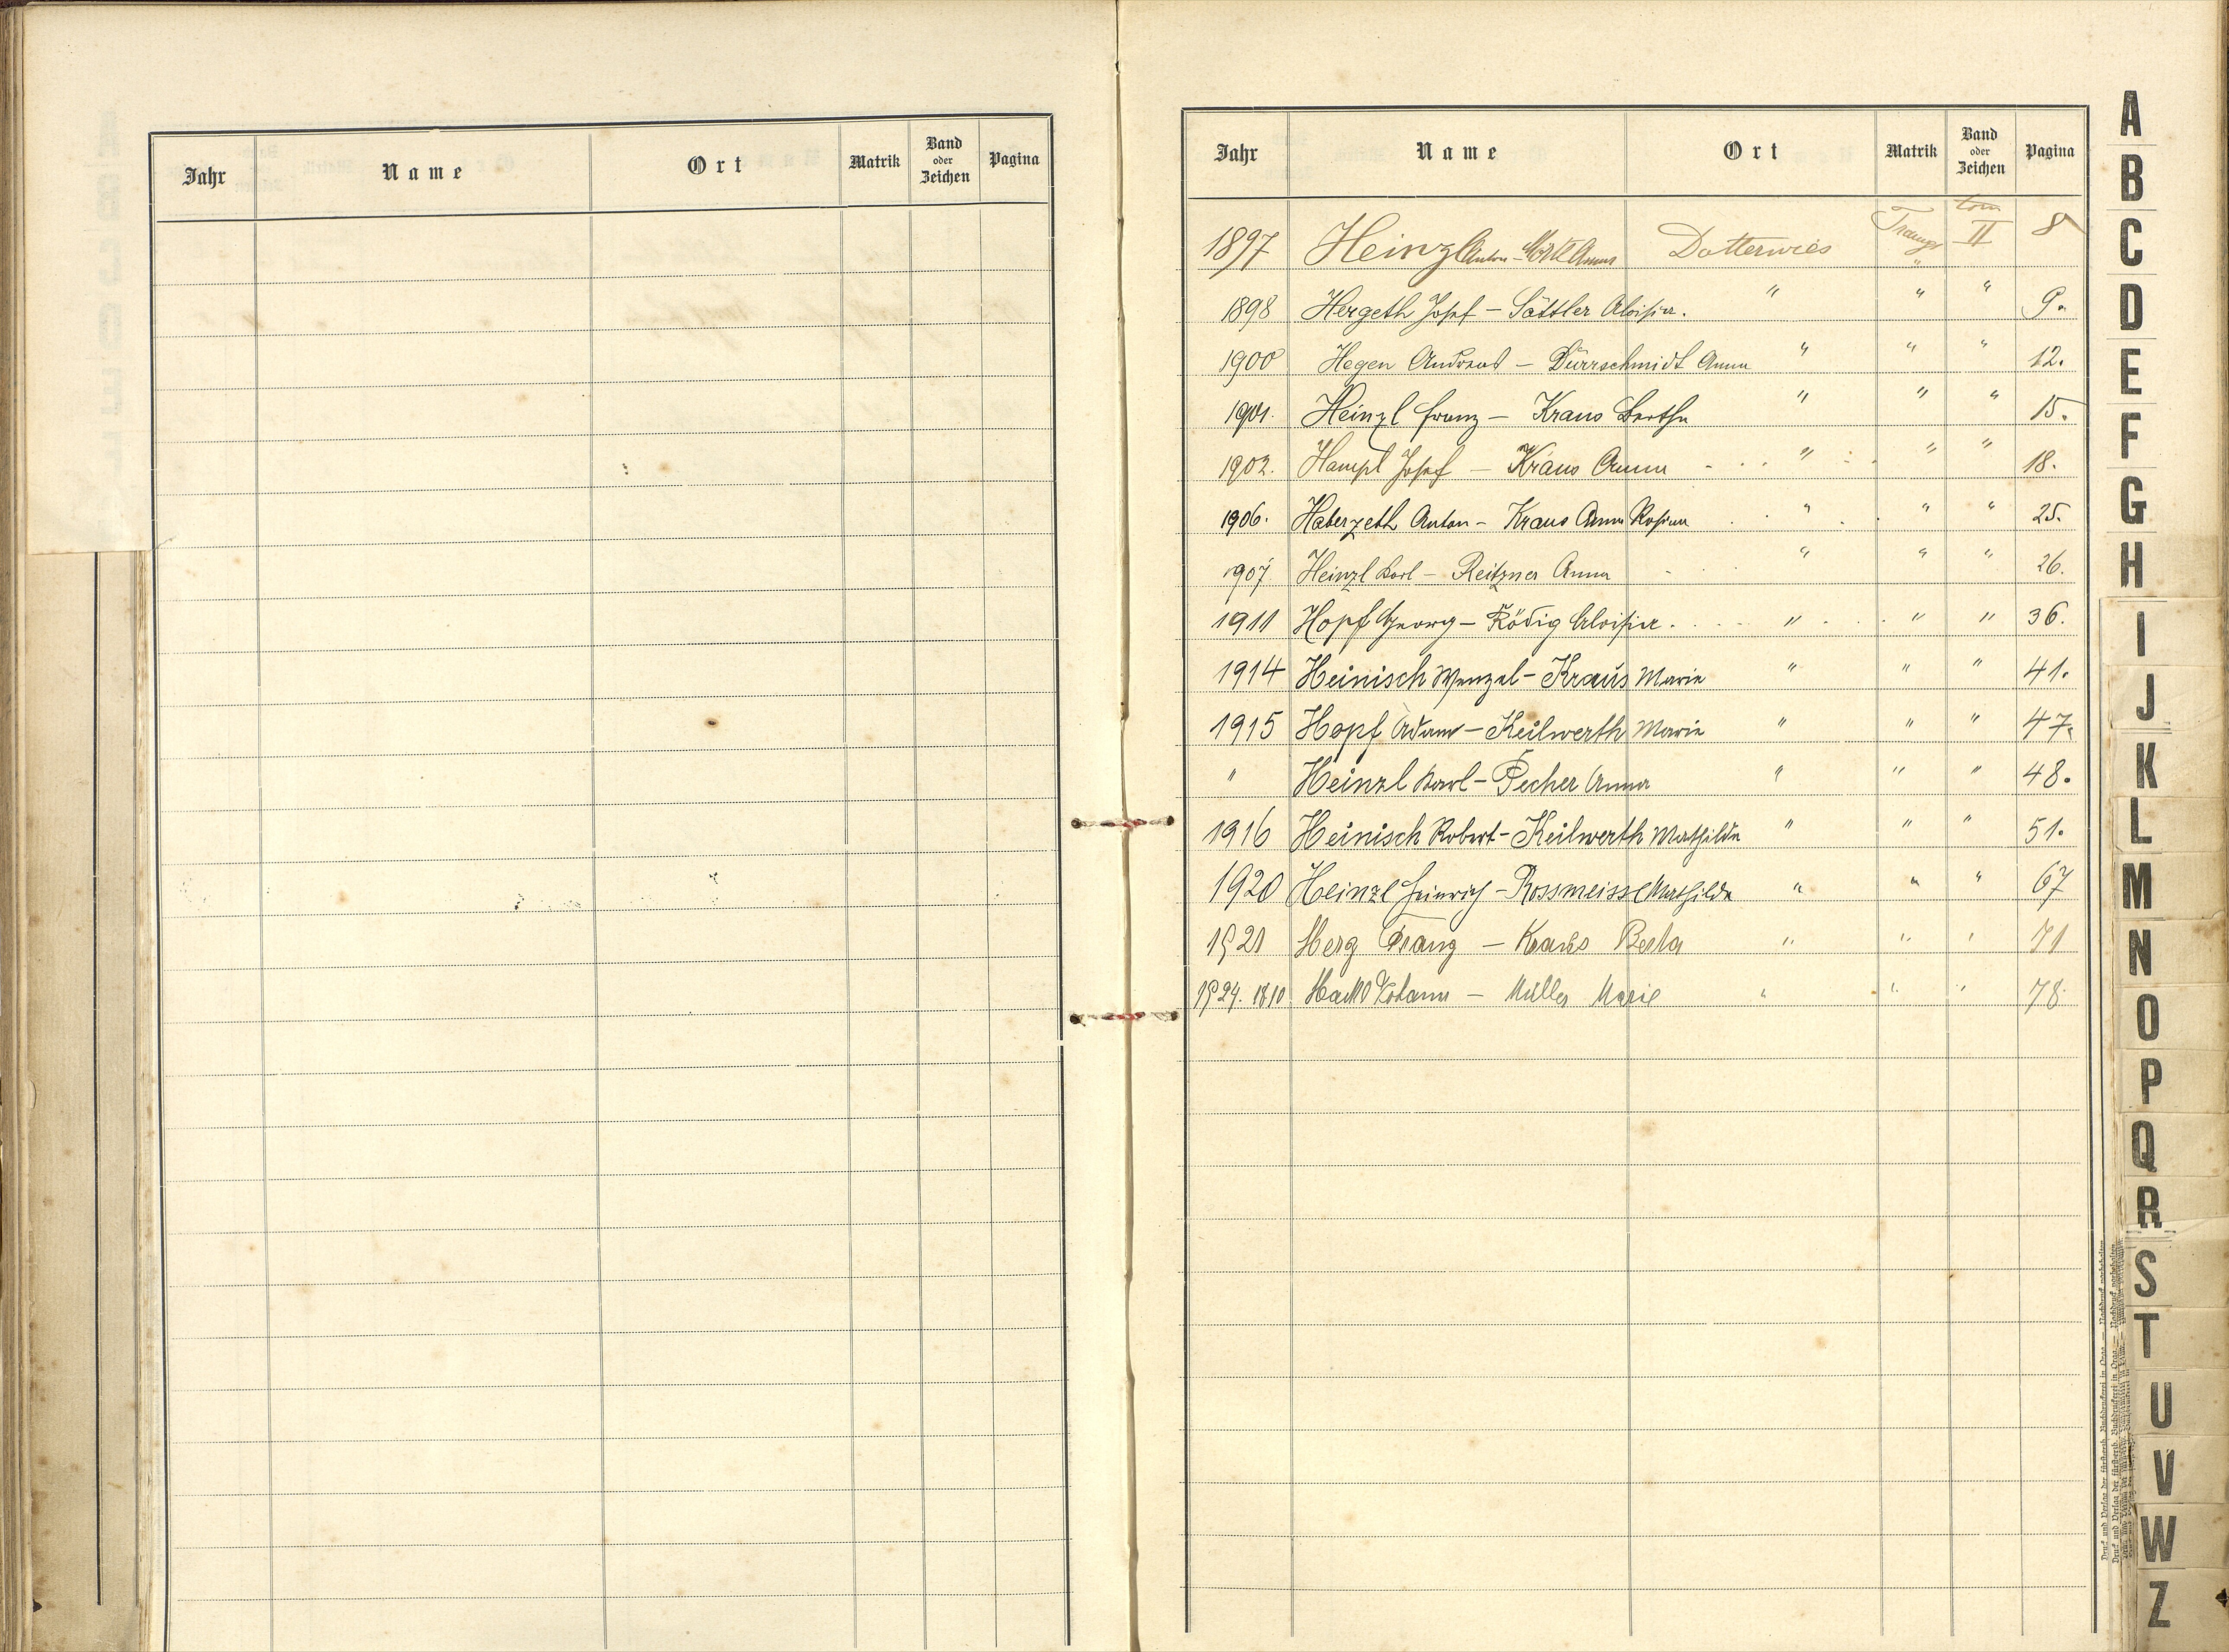 Jahr Name Ort Matrik Band oder Zeichen Pagina
Jahr Name Ort Matrik Band oder Zeichen Pagina
1897 Heinzl Anton - Anna Dotterwies tom II 8
1898 Hergeth Josef - Sattler Aloisia. " " " 9.
1900 Hegen Andreas - Dürrschmidt Anna " " " 12.
1901. Heinzl Franz - Kraus Bertha " " " 15.
1902. Hampl Josef - Kraus Anna " " " 18.
1906. Haberzeth Anton - Kraus Anna Rosina " " " 25.
1907 Heinzl Karl - Reitzner Anna " " " 26.
1911 Hopf Georg - Rödig Aloisia. " " " 36.
1914 Heinisch Wenzel - Kraus Marie " " " 41.
1915 Hopf Adam - Keilwerth Marie " " " 47.
" Heinzl Karl - Pecher Anna " " " 48.
1916 Heinisch Robert - Keilwerth Mathilde " " " 51.
1920 Heinzl Heinrich - Rossmeissl Mathilde " " " 67
1921 Herg Franz - Kraus Berta " " " 71
1924. 18/10 Johann - Müller Marie " " " 78.
A
B
C
D
E
F
G
H
I
J
K
L
M
N
O
P
Q
R
S
T
U
V
W
Z